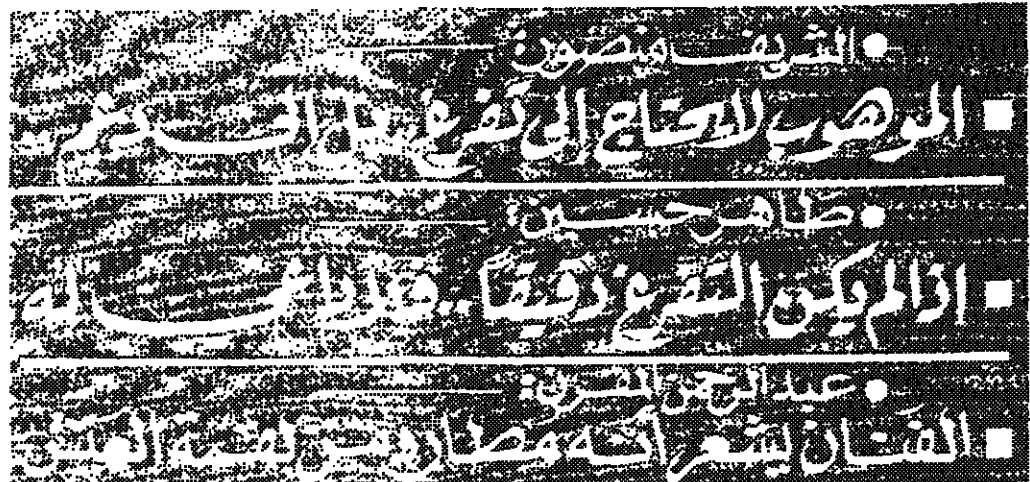 ● الشريف منصور:
■ الموهوب لا يحتاج إلى تفرغ بل الى دعم
● طاهر حسين:
■ اذا لم يكن التفرغ دقيقاً.. فلا داعى له
● عبد الرحمن المقرن:
■ الفنان يشعر أنه مطارد من لقمة العيش